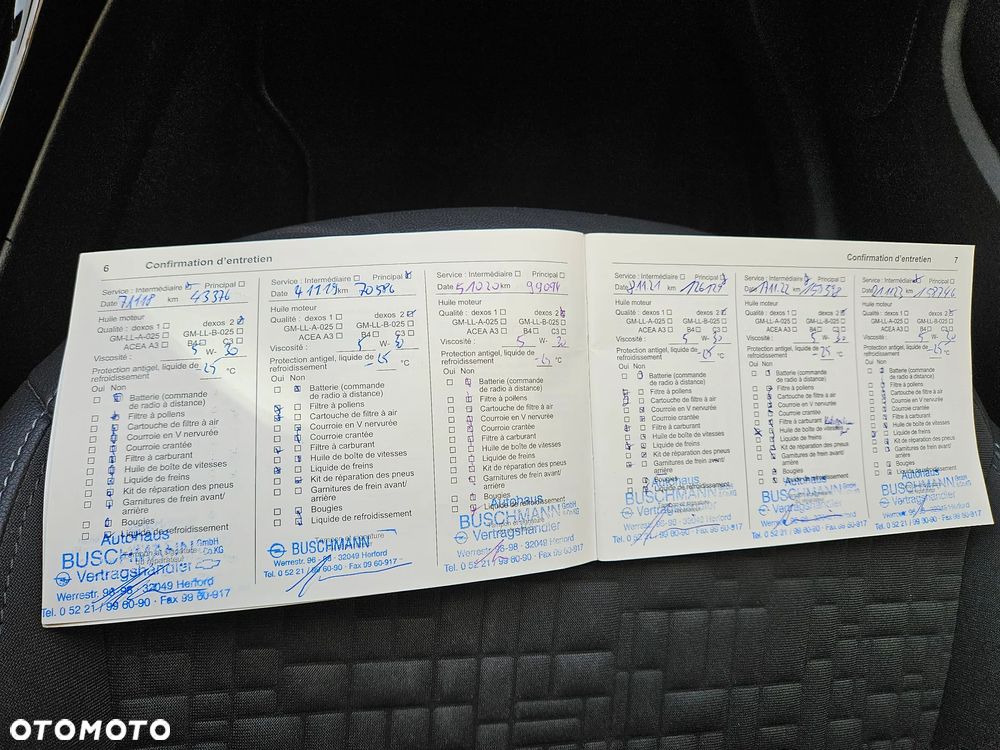 6 Confirmation d'entretien
Service : Intermédiaire Principal
Date 7 11 18 km 43376
Huile moteur
Qualité : dexos 1 dexos 2
GM-LL-A-025 GM-LL-B-025
ACEA A3 B4 C3
Viscosité : 5 W- 30
Protection antigel, liquide de
refroidissement °C
Oui Non
Batterie (commande
de radio à distance)
Filtre à pollens
Cartouche de filtre à air
Courroie en V nervurée
Courroie crantée
Filtre à carburant
Huile de boîte de vitesses
Liquide de freins
Kit de réparation des pneus
Garnitures de frein avant/
arrière
Bougies
Liquide de refroidissement
Autohaus
BUSCHMANN GmbH
Co KG
Vertragshändler
Werrestr. 96-98 · 32049 Herford
Tel. 0 52 21 / 99 60-90 · Fax 99 60-917
Service : Intermédiaire Principal
Date 4 11 19 km 70586
Qualité : dexos 1 dexos 2
GM-LL-A-025 GM-LL-B-025
ACEA A3 B4 C3
Viscosité : 5 W- 30
Protection antigel, liquide de
refroidissement °C
Oui Non
Batterie (commande
de radio à distance)
Filtre à pollens
Cartouche de filtre à air
Courroie en V nervurée
Courroie crantée
Filtre à carburant
Huile de boîte de vitesses
Liquide de freins
Kit de réparation des pneus
Garnitures de frein avant/
arrière
Bougies
Liquide de refroidissement
BUSCHMANN
32049 Herford
Service : Intermédiaire Principal
Date 5 10 20 km 99094
Huile moteur
Qualité : dexos 1 dexos 2
GM-LL-A-025 GM-LL-B-025
ACEA A3 B4 C3
Viscosité : 5 W- 30
Protection antigel, liquide de
refroidissement °C
Oui Non
Batterie (commande
de radio à distance)
Filtre à pollens
Cartouche de filtre à air
Courroie en V nervurée
Courroie crantée
Filtre à carburant
Huile de boîte de vitesses
Liquide de freins
Kit de réparation des pneus
Garnitures de frein avant/
arrière
Bougies
Liquide de refroidissement
Autohaus
BUSCHMANN
Vertragshändler
32049 Herford
Tel. 0 52 21 / 99 60-90 · Fax 99 60-917
Confirmation d'entretien 7
Service : Intermédiaire Principal
Date km
Huile moteur
Qualité : dexos 1 dexos 2
GM-LL-A-025 GM-LL-B-025
ACEA A3 B4 C3
Viscosité : 5 W- 30
Protection antigel, liquide de
refroidissement °C
Oui Non
Batterie (commande
de radio à distance)
Filtre à pollens
Cartouche de filtre à air
Courroie en V nervurée
Courroie crantée
Filtre à carburant
Huile de boîte de vitesses
Liquide de freins
Kit de réparation des pneus
Garnitures de frein avant/
arrière
Bougies
Liquide de refroidissement
Autohaus
BUSCHMANN
Vertragshändler
Service : Intermédiaire Principal
Date km
Huile moteur
Qualité : dexos 1 dexos 2
GM-LL-A-025 GM-LL-B-025
ACEA A3 B4 C3
Viscosité : 5 W- 30
Protection antigel, liquide de
refroidissement °C
Oui Non
Batterie (commande
de radio à distance)
Filtre à pollens
Cartouche de filtre à air
Courroie en V nervurée
Courroie crantée
Filtre à carburant
Huile de boîte de vitesses
Liquide de freins
Kit de réparation des pneus
Garnitures de frein avant/
arrière
Bougies
Liquide de refroidissement
BUSCHMANN
Vertragshändler
Service : Intermédiaire Principal
Date km
Huile moteur
Qualité : dexos 1 dexos 2
GM-LL-A-025 GM-LL-B-025
ACEA A3 B4 C3
Viscosité : 5 W- 30
Protection antigel, liquide de
refroidissement °C
Oui Non
Batterie (commande
de radio à distance)
Filtre à pollens
Cartouche de filtre à air
Courroie en V nervurée
Courroie crantée
Filtre à carburant
Huile de boîte de vitesses
Liquide de freins
Kit de réparation des pneus
Garnitures de frein avant/
arrière
Bougies
Liquide de refroidissement
Autohaus
BUSCHMANN
Vertragshändler
OTOMOTO